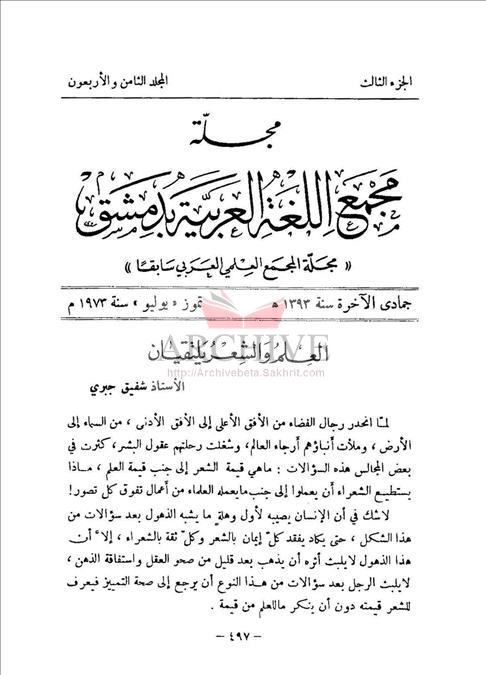 الجزء الثالث المجلد الثامن والأربعون
مجلّة
مجمع اللغة العربية بدمشق
« مجلة المجمع العلمي العربي سابقًا »
جمادى الآخرة سنة ١٣٩٣ هـ تموز «يوليو» سنة ١٩٧٣ م
ARCHIVE
العِلمُ والشِّعر يلتقيان
http://Archivebeta.Sakhrit.com
الأستاذ شفيق جبري
لمّا انحدر رجال الفضاء من الأفق الأعلى إلى الأفق الأدنى ، من السماء إلى
الأرض ، وملأت أنباؤهم أرجاء العالم، وشغلت رحلتهم عقول البشر، كثرت في
بعض المجالس هذه السؤالات : ماهي قيمة الشعر إلى جنب قيمة العلم ، مـاذا
يستطيع الشعراء أن يعملوا إلى جنب مايعمله العلماء من أعمال تفوق كل تصور!
لاشكّ في أن الإنسان يصيبه لأول وهلةٍ ما يشبه الذهول بعد سؤالات من
هذا الشكل ، حتى يكاد يفقد كلّ إيمان بالشعر وكلّ ثقة بالشعراء ، إلا أن
هذا الذهول لايلبث أثره أن يذهب بعد قليل من صحو العقل واستفاقة الذهن ،
لايلبث الرجل بعد سؤالات من هذا النوع أن يرجع إلى صحة التمييز فيعرف
للشعر قيمته دون أن ينكر ماللعلم من قيمة .
– ٤٩٧ –